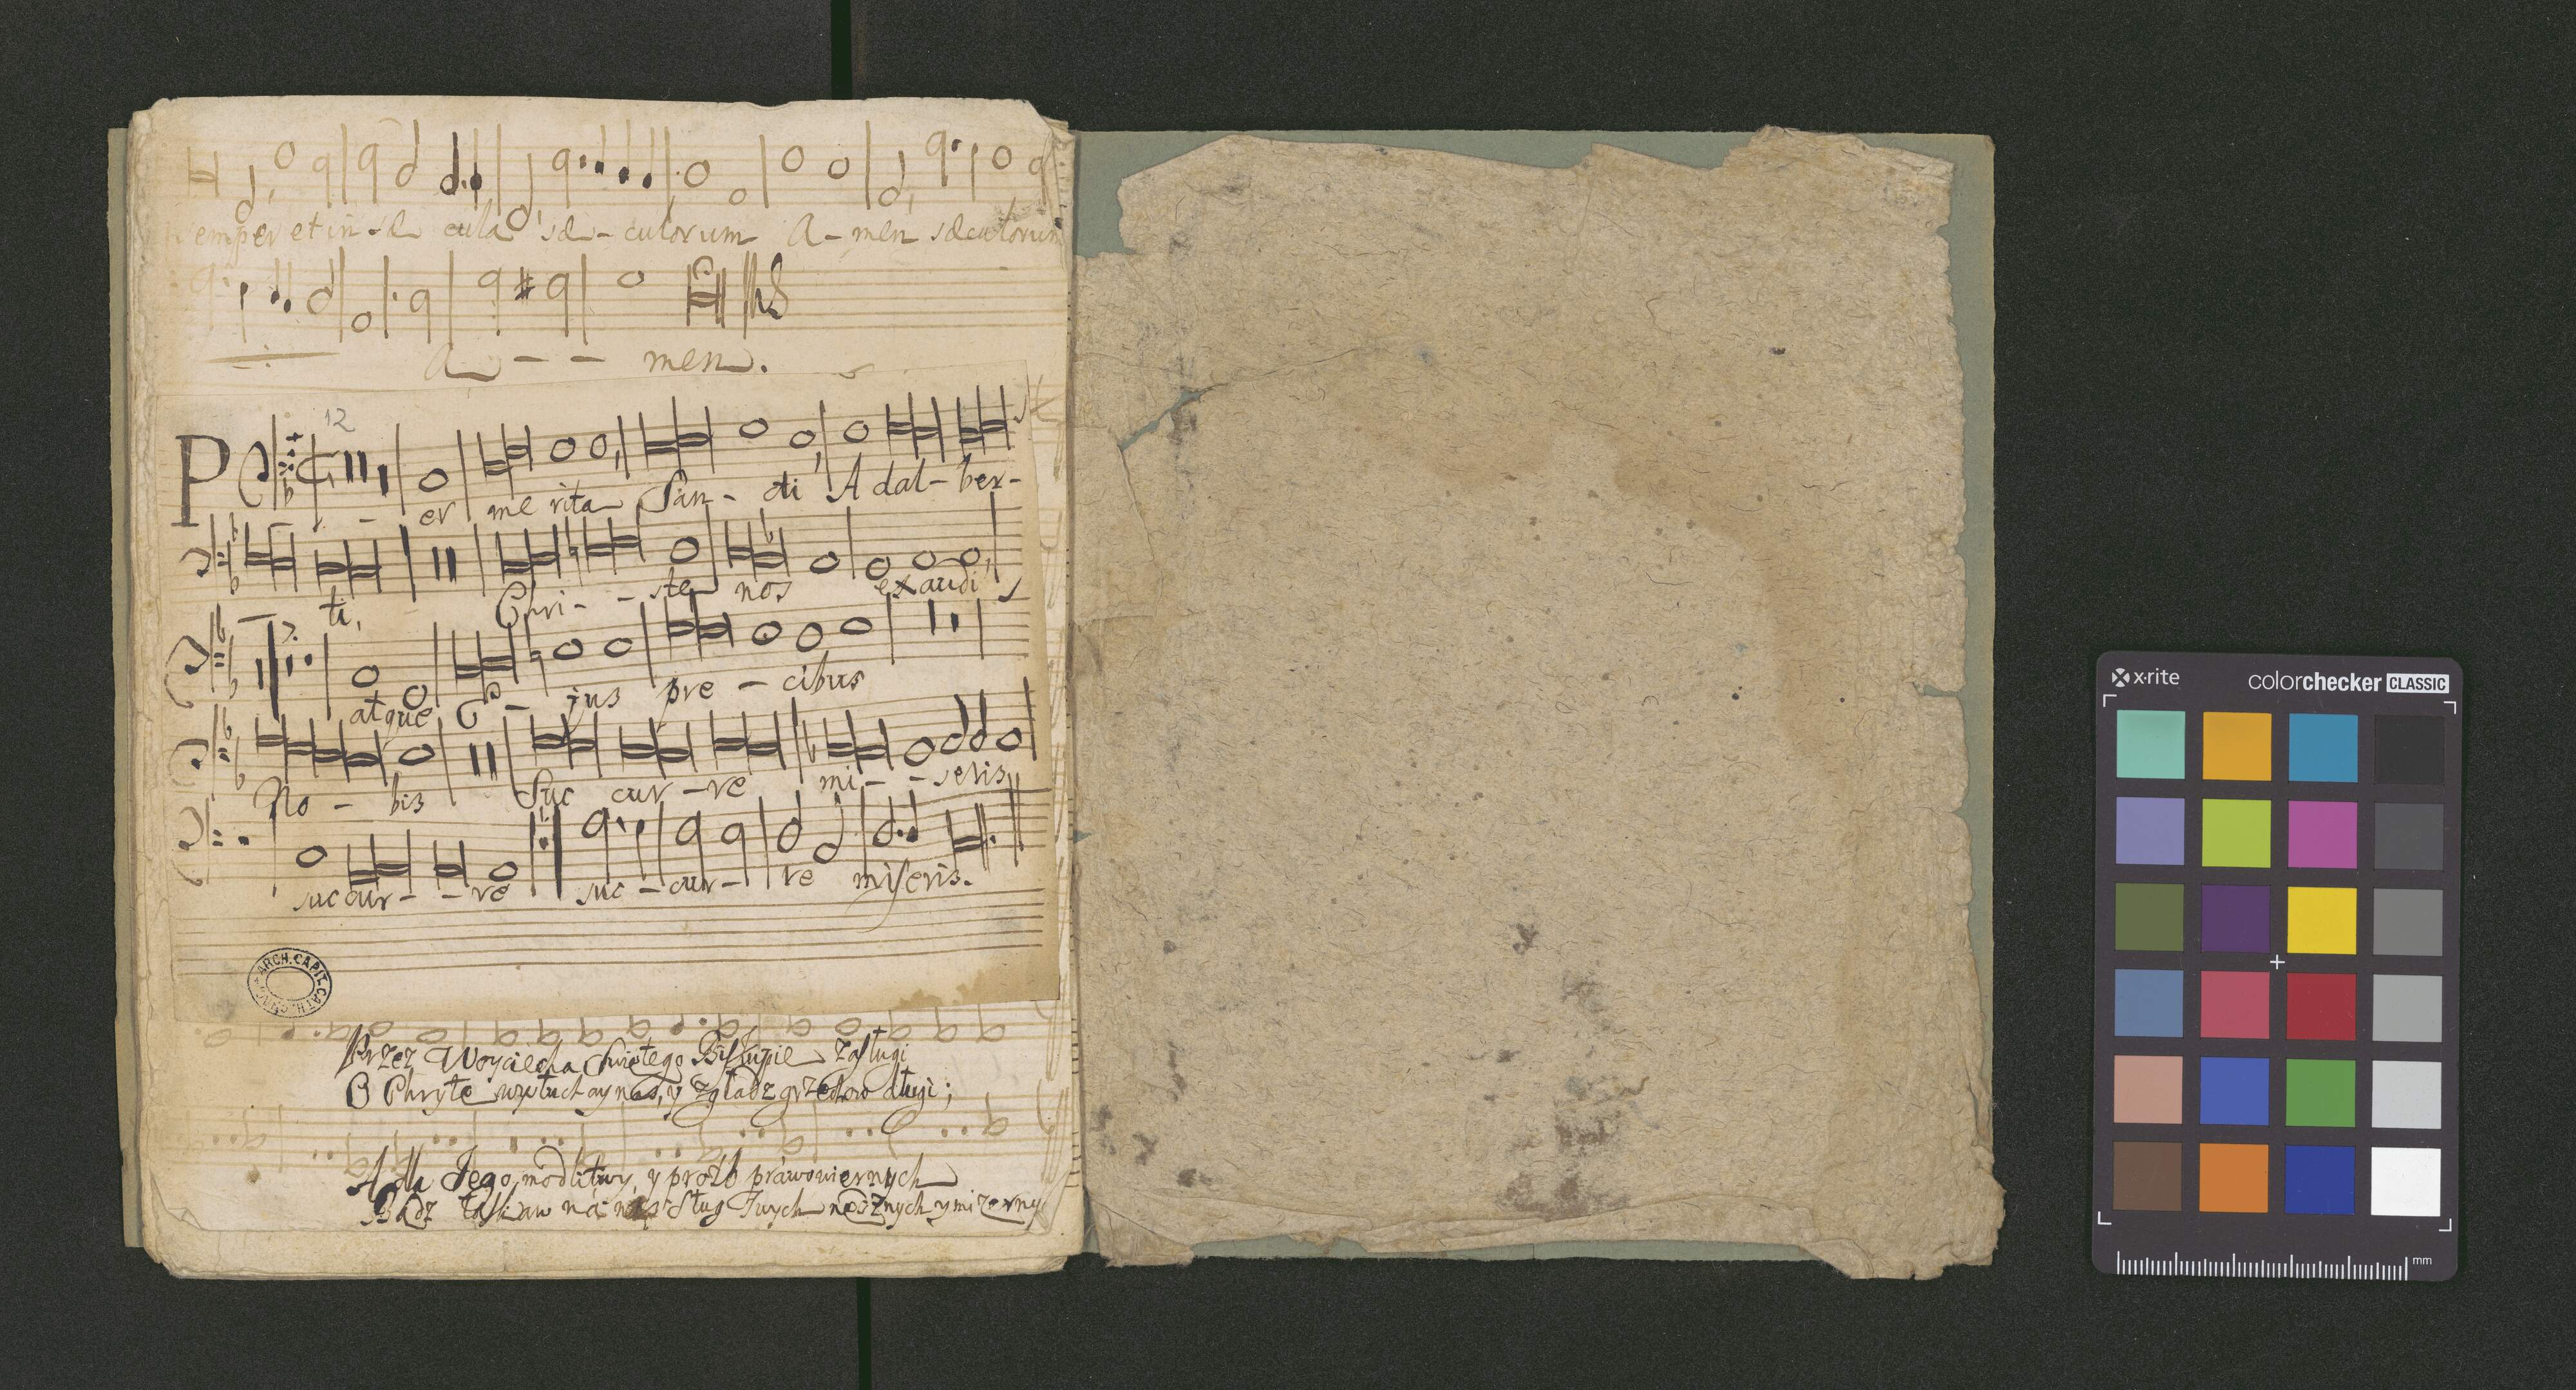 semper et in sæ cula sæ - culorum A - men sæculorum
A - - men.
12
Per me rita San - cti Adal - ber -
ti, Chri - - ste nos exaudi
atque E - jus pre - cibus
No - bis Suc cur - re mi - - seris
succur - - re suc - cur - re miseris.
ARCH. CAPIT. CATH. CRAC.
Przez Woyciecha Swiętego Biskupie zasługi
O Chryste wysłuchay nas, y zgładz grzechow długi;
A dla Jego modlitwy, y prozb prawowiernych
Bądz łaskaw na nas Sług Twych nędznych y mizerny
x-rite
colorchecker CLASSIC
mm